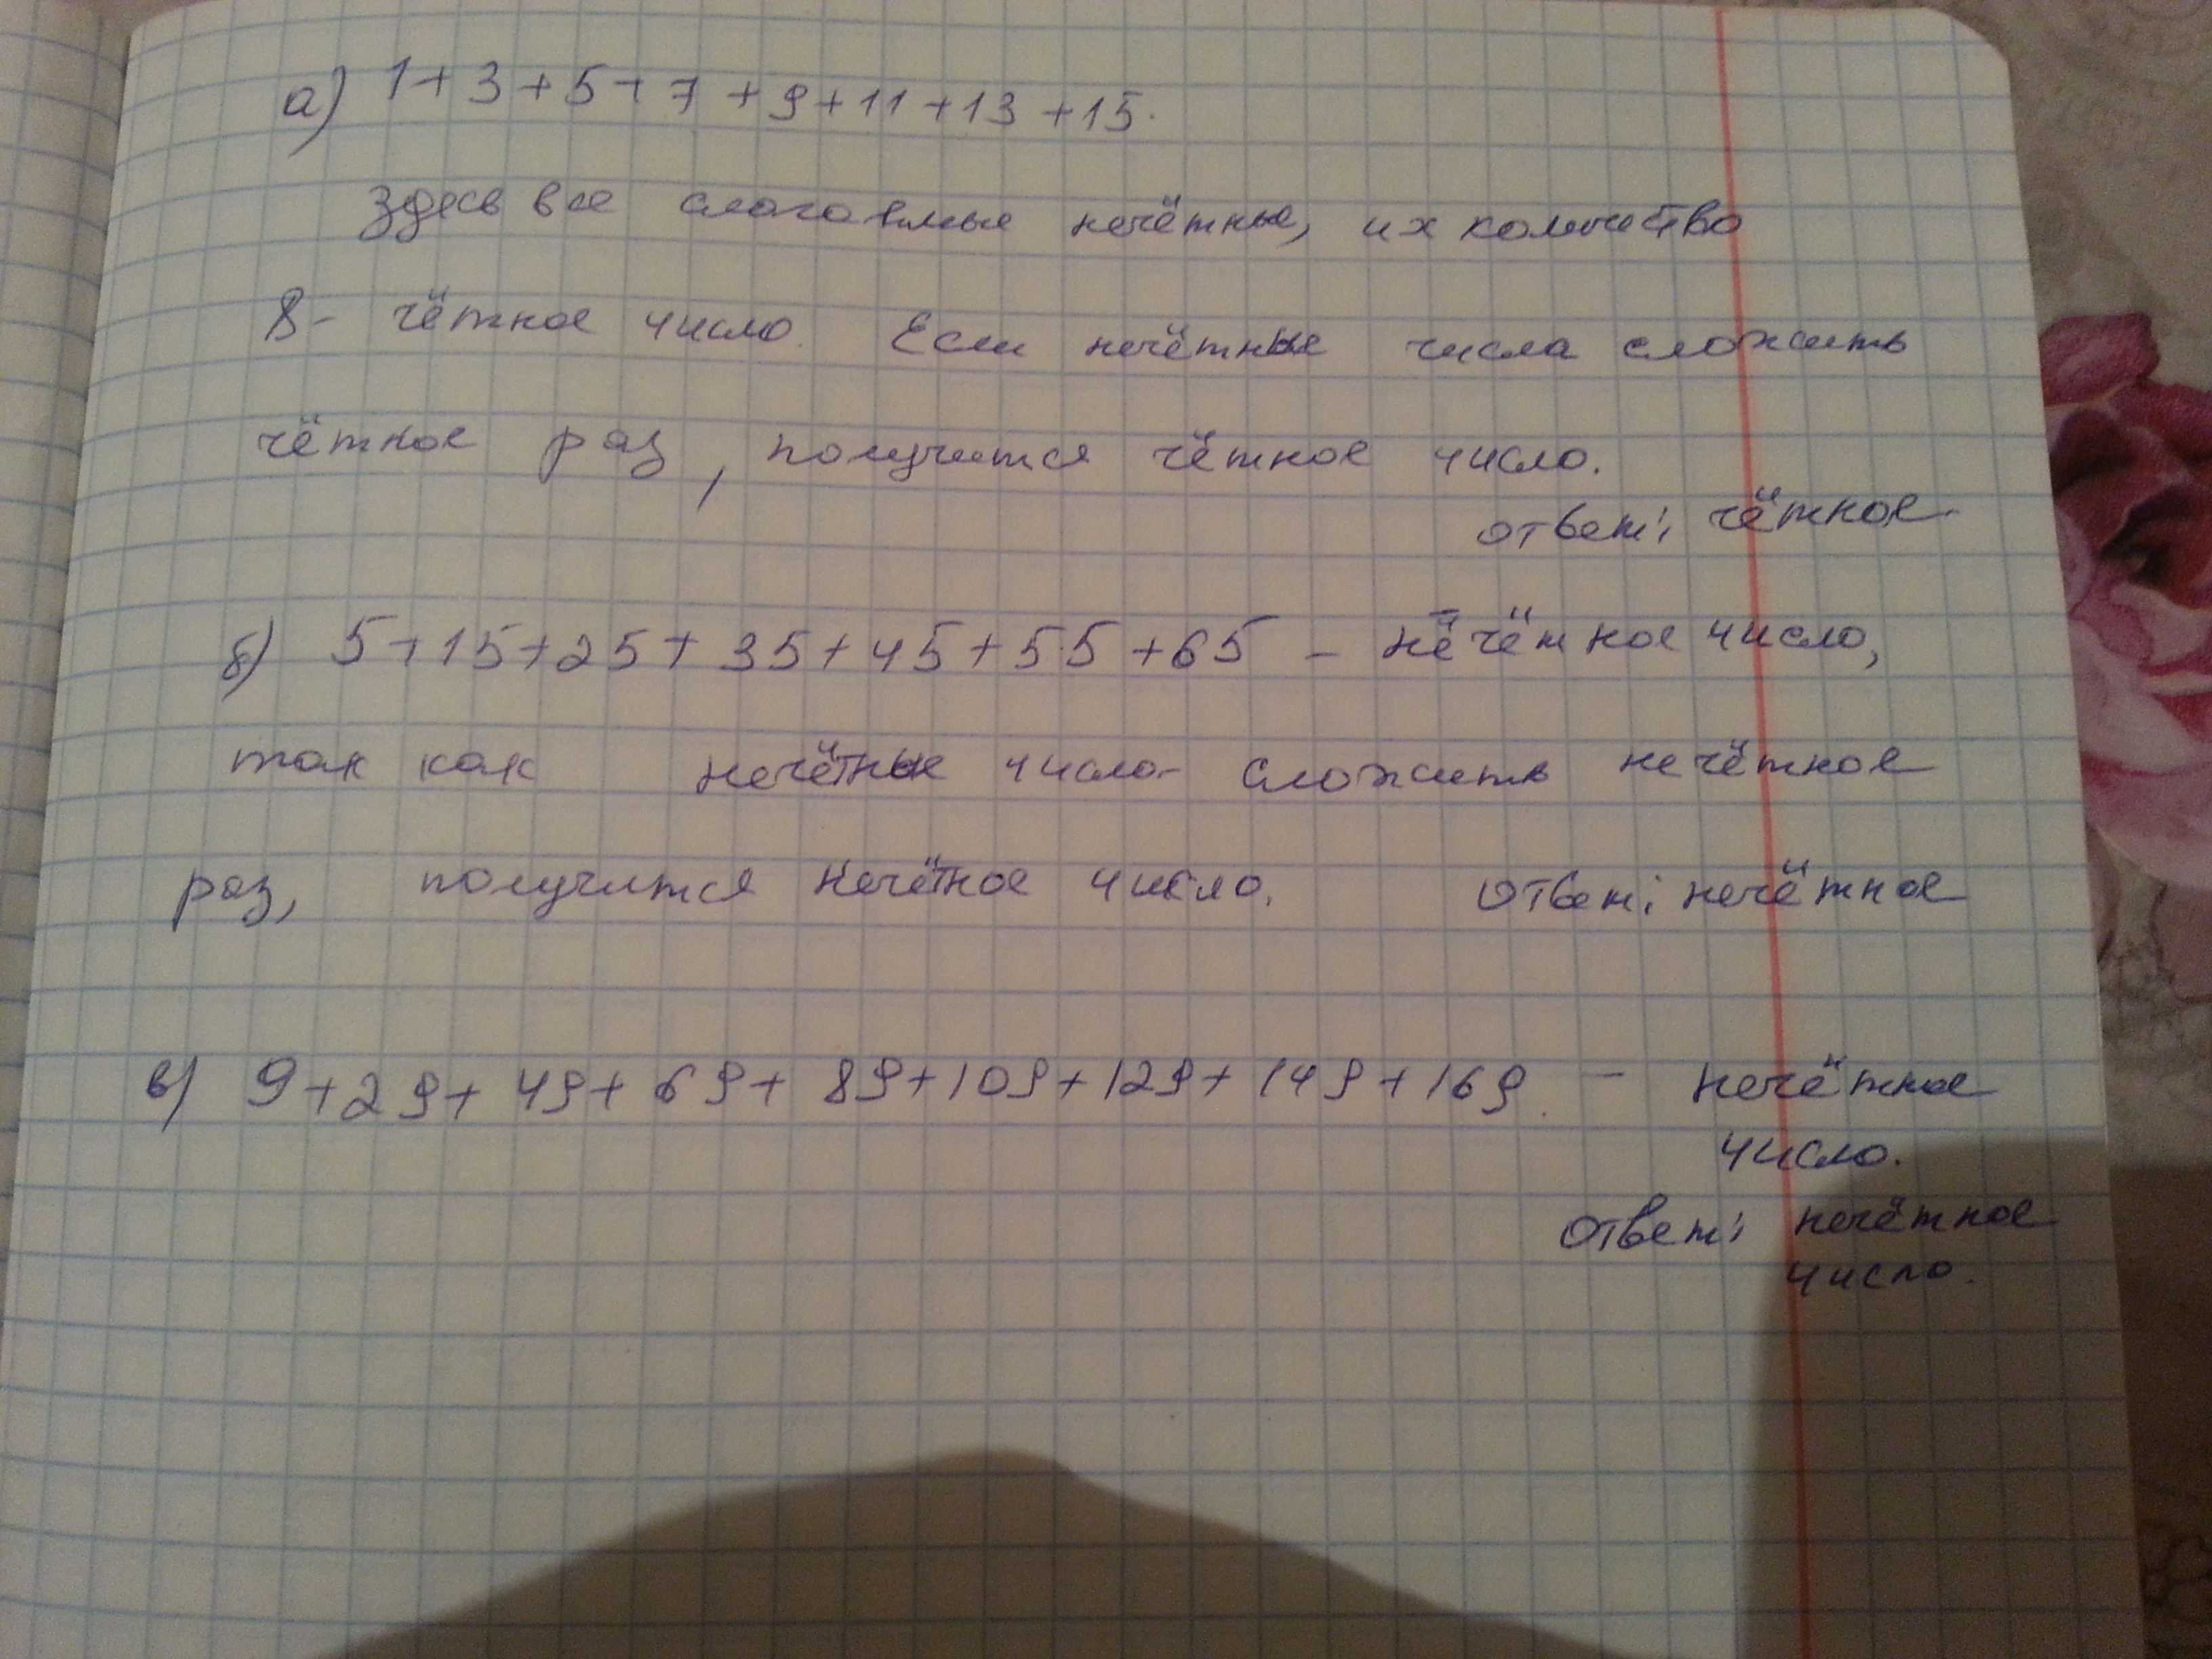 а) 1+3+5+7+9+11+13+15.
Здесь все слагаемые нечётные, их количество
8- чётное число. Если нечётные числа сложить
чётное раз, получится чётное число.
ответ: чётное.
б) 5+15+25+35+45+55+65 - нечётное число,
так как нечётные число сложить нечётное
раз, получится нечётное число. Ответ: нечётное
в) 9+29+49+69+89+109+129+149+169. - нечётное
число.
Ответ: нечётное
число.